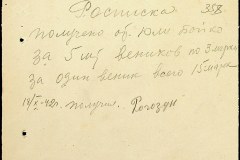 Росписка 358
получено от Юли Бойко
за 5 шт веников по 3 марки
за один веник всего 15 марок
14/X-42г. получил. Рогозун